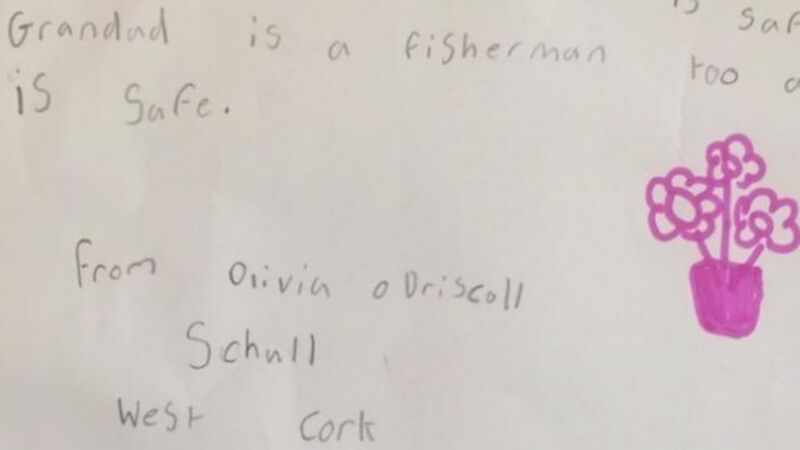 is saf
Grandad is a fisherman too a
is safe.
From Olivia o Driscoll
Schull
West Cork